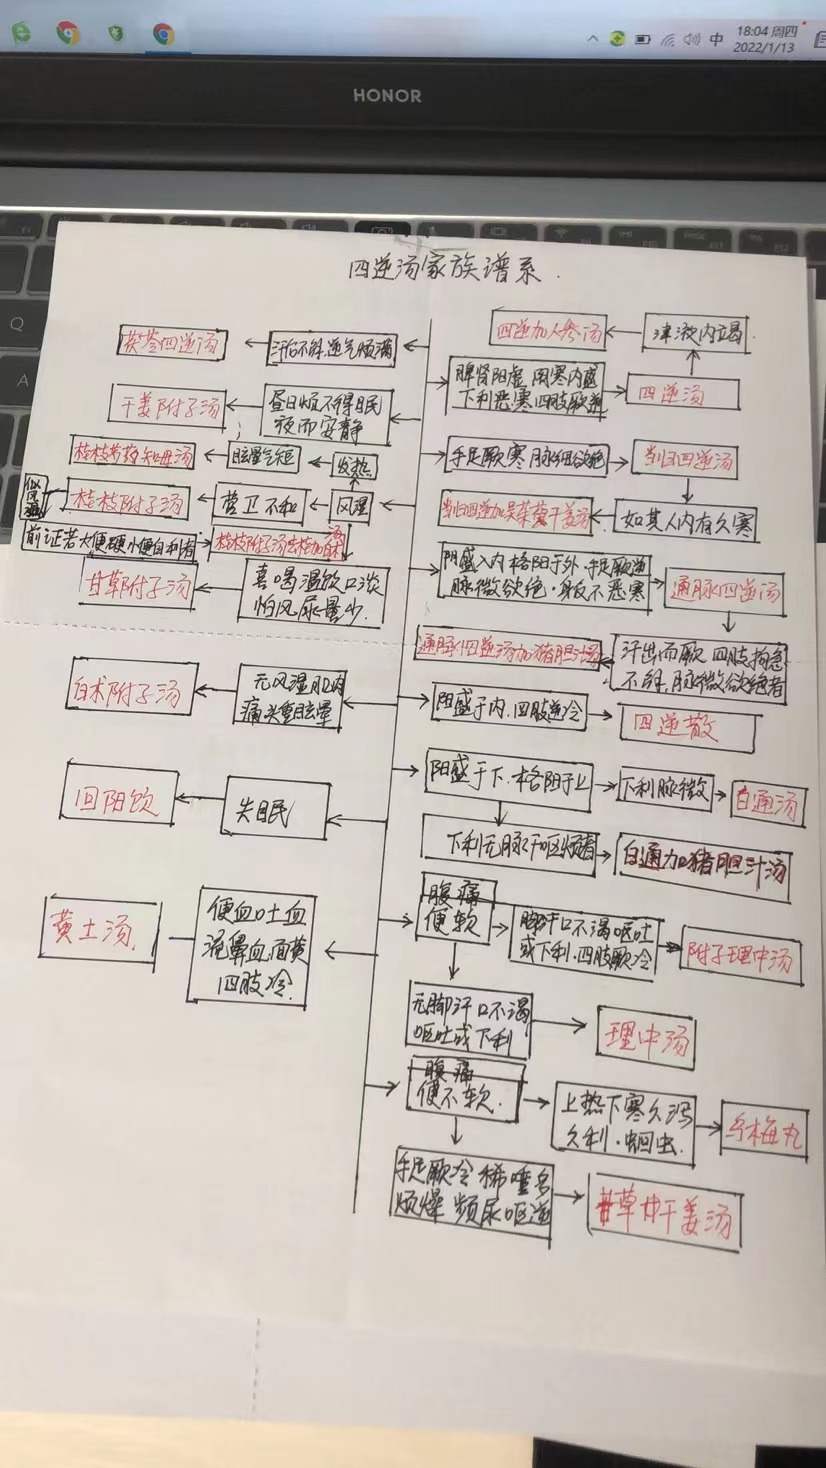 18:04 周四
中
2022/1/13
HONOR
Q
A
四逆汤家族谱系
茯苓四逆汤
汗后不解.逆气烦满
四逆加人参汤
津液内竭
脾肾阳虚
下利恶寒四肢厥逆
四逆汤
干姜附子汤
昼日烦不得眠
夜而安静
手足厥寒.脉细欲绝
当归四逆汤
桂枝芍药知母汤
眩晕气短
发热
桂枝附子汤
营卫不和
风湿
当归四逆加吴茱萸干姜汤
如其人内有久寒
前证若大便硬小便自利者
桂枝附子汤去桂加
甘草附子汤
喜喝温饮口淡
怕风尿量少.
阴盛入内格阳于外.手足厥逆
脉微欲绝.身反不恶寒
通脉四逆汤
通脉四逆汤加猪胆汁汤
汗出而厥 四肢拘急
不解.脉微欲绝者
白术附子汤
无风湿肌肉
痛头重眩晕
阳盛于内.四肢逆冷
四逆散
回阳饮
失眠
阳盛于下.格阴于上
下利脉微
白通汤
下利无脉干呕烦者
白通加猪胆汁汤
黄土汤.
便血吐血
流鼻血.面黄
四肢冷.
腹痛
便软
脚汗口不渴呕吐
或下利.四肢厥冷
附子理中汤
无脚汗口不渴
呕吐或下利
理中汤
腹痛
便不软.
上热下寒久泻
久利.蛔虫.
乌梅丸
手足厥冷稀唾多
烦燥 频尿呕逆
甘草干姜汤